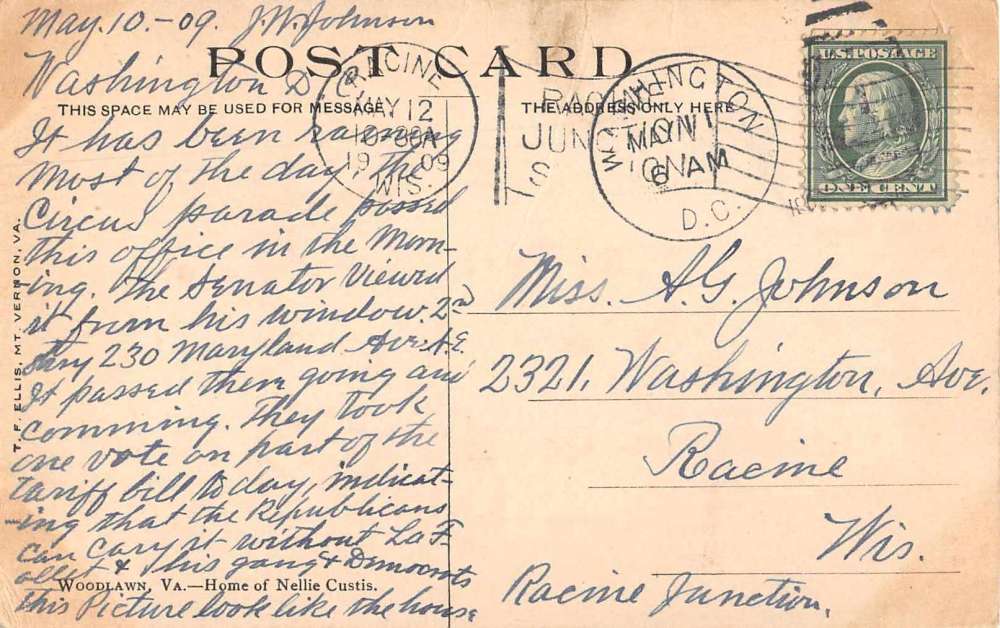 May. 10-09. J.W. Johnson
Washington D
POST CARD
THIS SPACE MAY BE USED FOR MESSAGE
THE ADDRESS ONLY HERE
RACINE
MAY 12
1909
WIS.
RAC
JUN
WASHINGTON
MAY 11
6 AM
D.C.
U.S. POSTAGE
ONE CENT
It has been raining
most of the day the
Circus parade passed
this office in the Morn-
ing. The Senator Viewed
it from his window. 2nd
story 230 Maryland Ave. N.E.
It passed there going and
comming. They took
one vote on part of the
tariff bill to day, indicat-
ing that the Republicans
can cary it without La F-
ollet & his gang & Democrats
this Picture look like the house
WOODLAWN, VA.—Home of Nellie Custis.
T. F. ELLIS, MT. VERNON, VA.
Miss. A.G. Johnson
2321, Washington, Ave.
Racine
Wis.
Racine Junction,